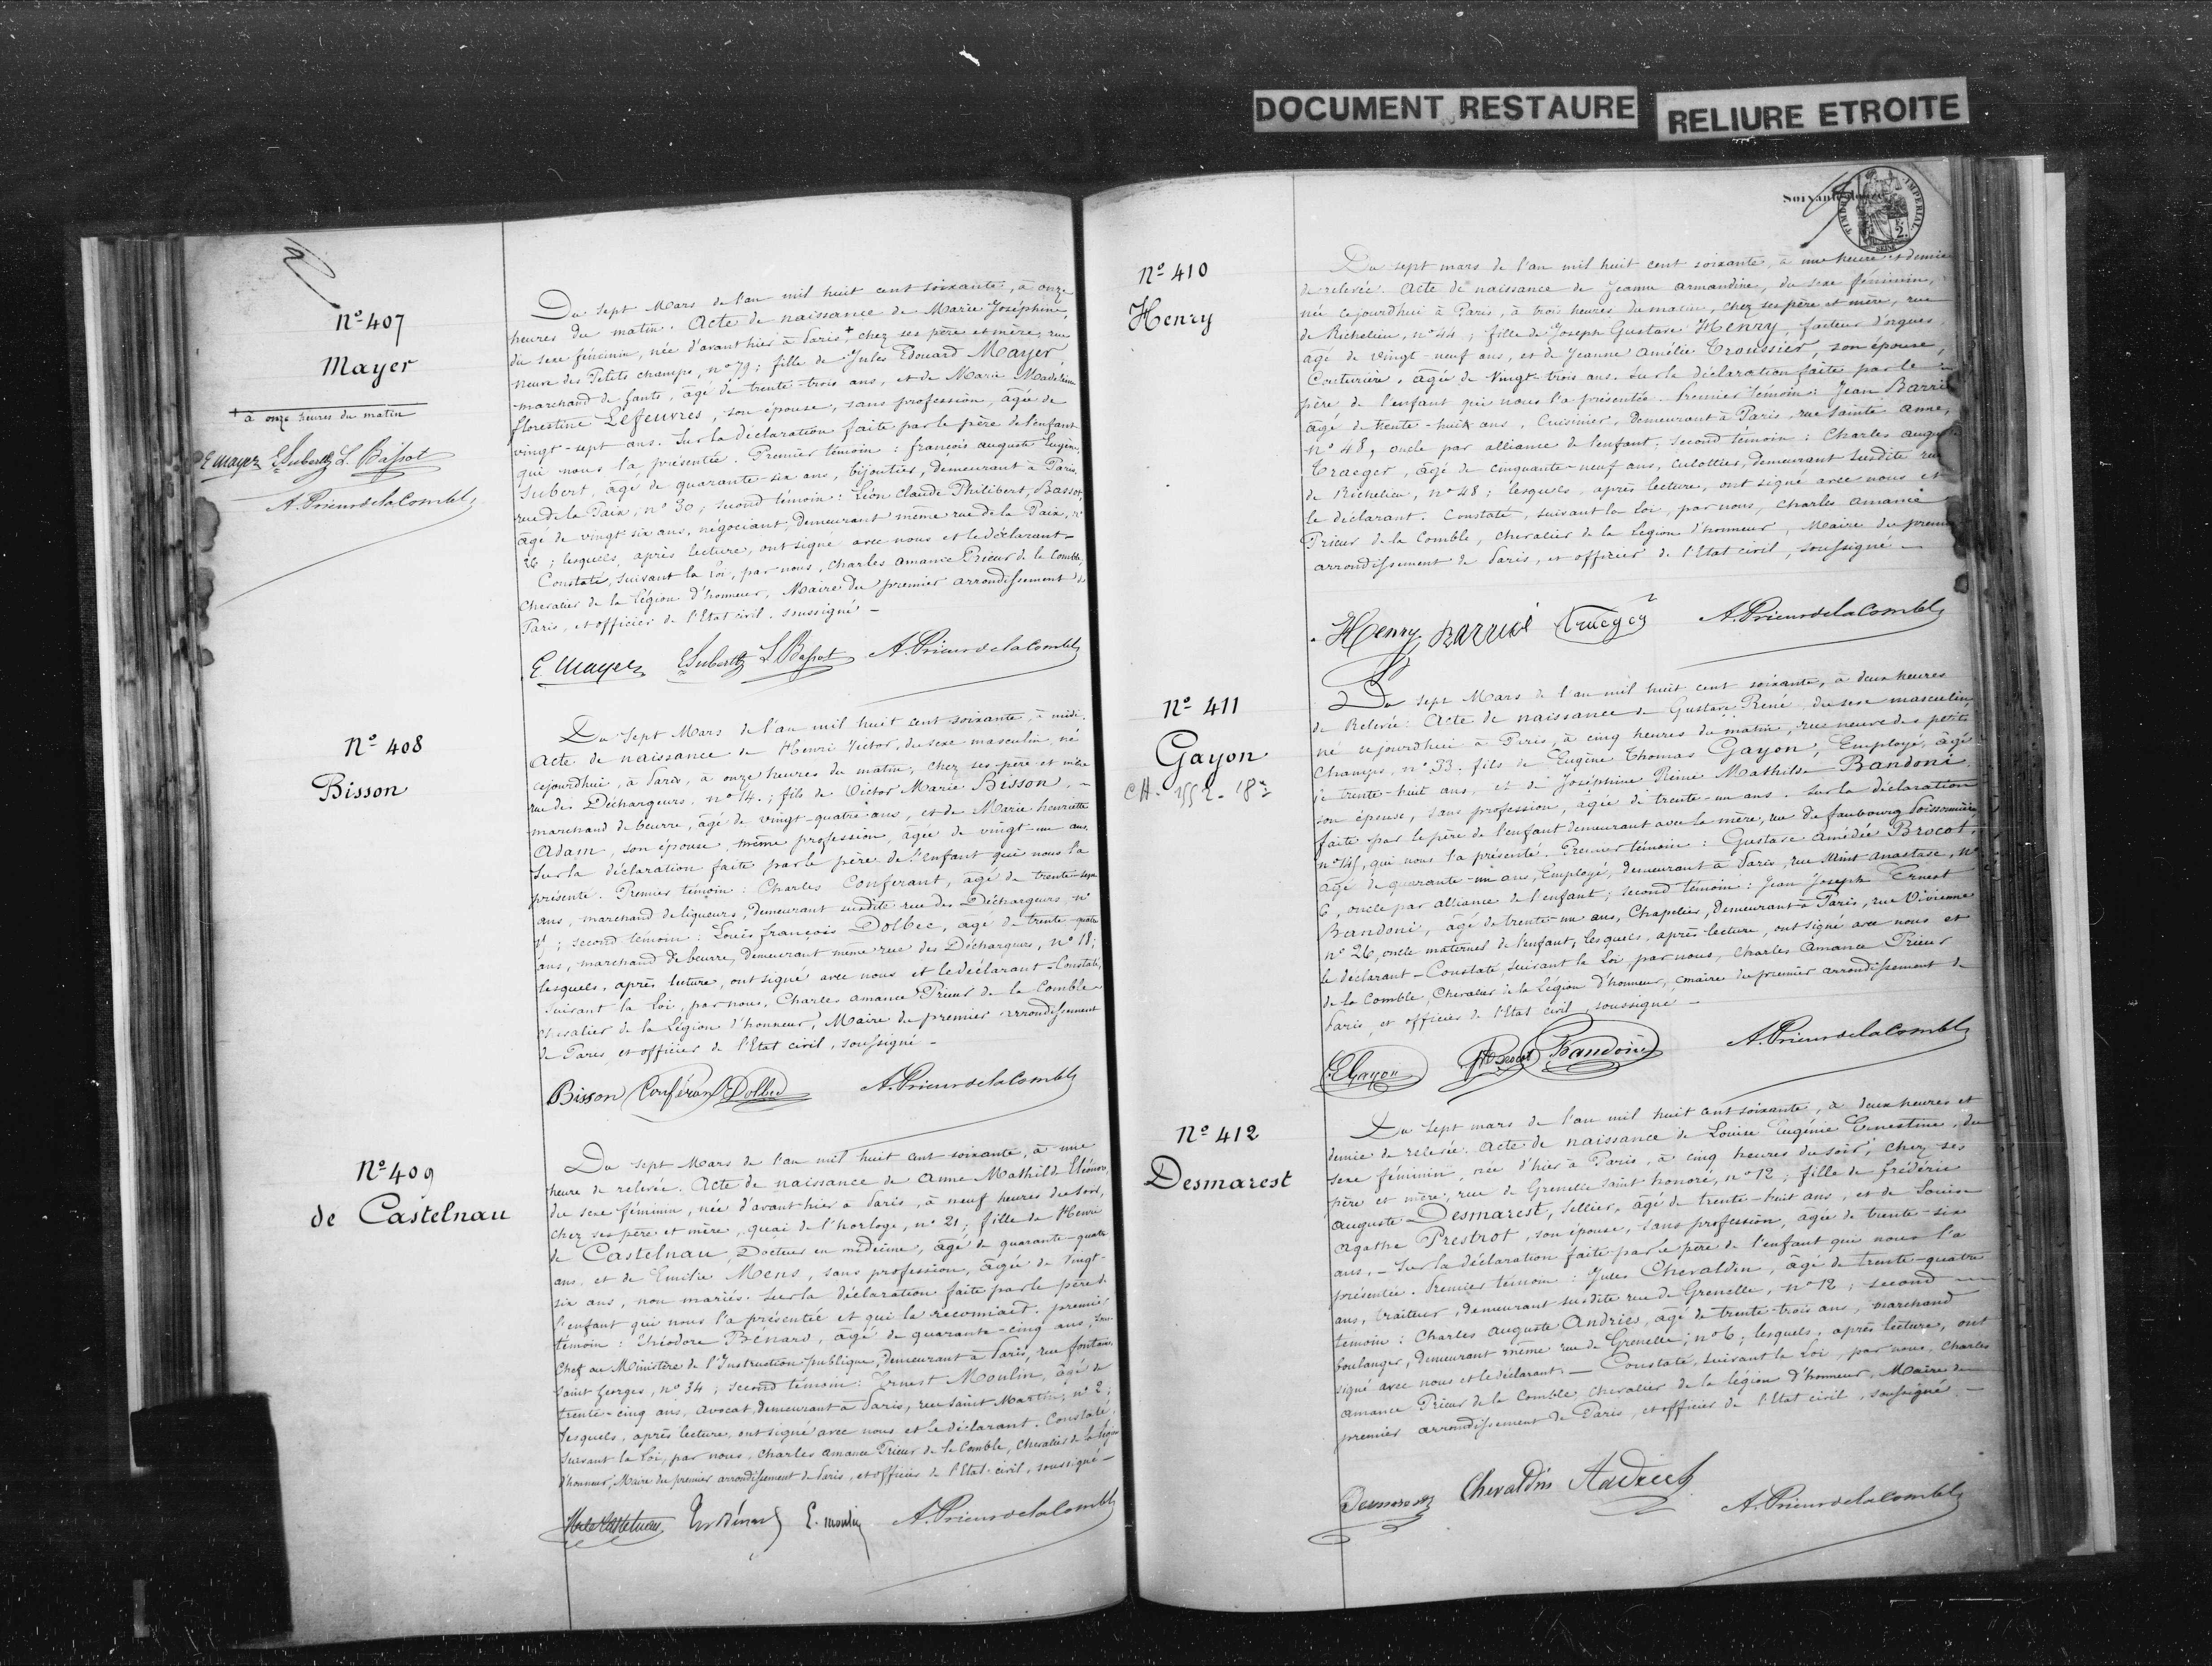 DOCUMENT RESTAURE
RELIURE ETROITE
Nº 407
Mayer
+ à onze heures du matin
E Mayer ESubert L. Bassot
A. Prieur de la Comble
Du sept Mars de l'an mil huit cent soixante, à onze
heures du matin. Acte de naissance de Marie Joséphine,
du sexe féminin, née d'avant hier à Paris + chez ses père et mère, rue
neuve des Petits champs, nº 79; fille de Jules Edouard Mayer
marchand de gants, âgé de trente-trois ans, et de Marie Madeleine
florestine Lefeuvres, son épouse, sans profession, âgée de
vingt-sept ans. Sur la déclaration faite par le père de l'enfant
qui nous l'a présentée. Premier témoin: françois auguste Eugène
Subert, âgé de quarante-six ans, bijoutier, demeurant à Paris,
rue de la Paix, nº 30; second témoin: Léon Claude Philibert, Bassot,
âgé de vingt six ans, négociant, demeurant même rue de la Paix, nº
26; lesquels, après lecture, ont signé avec nous et le déclarant-
Constaté, suivant la Loi, par nous, Charles amance Prieur de la Comble,
Chevalier de la Légion d'honneur, Maire du premier arrondissement de
Paris, et officier de l'Etat civil, soussigné-
E Mayer ESubert L Bassot A. Prieur de la Comble
Nº 408
Bisson
Du Sept Mars de l'an mil huit cent soixante, à midi.
Acte de naissance de Henri Victor, du sexe masculin, né
cejourdhui, à Paris, à onze heures du matin, chez ses père et mère
rue des Déchargeurs, nº 14.; fils de Victor Marie Bisson,
marchand de beurre, âgé de vingt-quatre ans, et de Marie henriette
Adam, son épouse, même profession, âgée de vingt-un ans.
Sur la déclaration faite par le père de l'enfant qui nous l'a
présenté. Premier témoin: Charles Conferant, âgé de trente-sept
ans, marchand de liqueurs, demeurant susdite rue des Déchargeurs, nº
; second témoin: Louis françois Dolbec, âgé de trente-quatre
ans, marchand de beurre, demeurant même rue des Déchargeurs, nº 18;
lesquels, après lecture, ont signé avec nous et le déclarant-Constaté,
suivant la Loi, par nous, Charles amance Prieur de la Comble
Chevalier de la Légion d'honneur, Maire du premier arrondissement
de Paris, et officier de l'Etat civil, soussigné-
Bisson Conférant Dolbec A. Prieur de la Comble
Nº 409
de Castelnau
Du sept Mars de l'an mil huit cent soixante, à une
heure de relevée. Acte de naissance de Anne Mathilde Eléonore,
du sexe féminin, née d'avant hier à Paris, à neuf heures du soir,
chez ses père et mère, quai de l'horloge, nº 21; fille de Henri
de Castelnau, Docteur en médecine, âgé de quarante-quatre
ans, et de Emilie Mens, sans profession, âgée de vingt-
six ans, non mariés. Sur la déclaration faite par le père de
l'enfant qui nous l'a présentée et qui la reconnait. premier
témoin: Théodore Bénard, âgé de quarante-cinq ans, sous-
Chef au Ministère de l'Instruction publique, demeurant à Paris, rue fontaine
Saint Georges, nº 34; second témoin: Ernest Moulin, âgé de
trente-cinq ans, avocat, demeurant à Paris, rue Saint Martin, nº 2;
lesquels, après lecture, ont signé avec nous et le déclarant. Constaté
suivant la Loi, par nous, Charles amance Prieur de la Comble, Chevalier de la Légion
d'honneur, Maire du premier arrondissement de Paris, et officier de l'Etat-civil, soussigné-
H de Castelnau Th Bénard E. Moulin A. Prieur de la Comble
TIMBRE IMPERIAL
SEINE
Nº 410
Henry
Du sept mars de l'an mil huit cent soixante, à une heure et demie
de relevée. Acte de naissance de Jeanne armandine, du sexe féminin,
née cejourdhui à Paris, à trois heures du matin, chez ses père et mère, rue
de Richelieu, nº 44; fille de Joseph Gustave Henry, facteur d'orgues,
âgé de vingt-neuf ans, et de Jeanne Amélie Troussier, son épouse,
Couturière, âgée de vingt-trois ans. Sur la déclaration faite par le
père de l'enfant qui nous l'a présentée. Premier témoin: Jean Barrié
âgé de trente-huit ans, Cuisinier, demeurant à Paris, rue sainte anne,
nº 48, oncle par alliance de l'enfant; second témoin: Charles august
Traeger, âgé de cinquante-neuf ans, culottier, demeurant susdite rue
de Richelieu, nº 48; lesquels, après lecture, ont signé avec nous et
le déclarant. Constaté, suivant la Loi, par nous, Charles amance
Prieur de la Comble, Chevalier de la Légion d'honneur, Maire du premier
arrondissement de Paris, et officier de l'Etat civil, soussigné-
Henry Barrié Traeger A. Prieur de la Comble
Nº 411
Gayon
Du sept Mars de l'an mil huit cent soixante, à deux heures
de Relevée. Acte de naissance de Gustave René, du sexe masculin,
né cejourdhui à Paris, à cinq heures du matin, rue neuve des petits
Champs, nº 33. fils de Eugène Thomas Gayon, Employé, âgé
de trente-huit ans, et de Joséphine Reine Mathilde Bandoni
son épouse, sans profession, âgée de trente-un ans. Sur la déclaration
faite par le père de l'enfant demeurant avec la mère, rue du faubourg Poissonnière
nº 145, qui nous l'a présenté. Premier témoin: Gustave Amédée Brocot,
âgé de quarante-un ans, Employé, demeurant à Paris, rue Saint anastase, nº
6, oncle par alliance de l'enfant; second témoin: Jean Joseph Ernest
Bandoni, âgé de trente-un ans, Chapelier, demeurant à Paris, rue Vivienne
nº 26, oncle maternel de l'enfant; lesquels, après lecture, ont signé avec nous et
le déclarant-Constaté, suivant la Loi, par nous, Charles Amance Prieur
de la Comble, Chevalier de la Légion d'honneur, maire du premier arrondissement de
Paris, et officier de l'Etat civil, soussigné-
E Gayon Brocot Bandoni A. Prieur de la Comble
Nº 412
Desmarest
Du sept mars de l'an mil huit cent soixante, à deux heures et
demie de relevée. Acte de naissance de Louise Eugénie Ernestine, du
sexe féminin, née d'hier à Paris, à cinq heures du soir, chez ses
père et mère, rue de Grenelle Saint honoré, nº 12; fille de frédéric
auguste Desmarest, Sellier, âgé de trente-huit ans, et de Louise
Agathe Prestrot, son épouse, sans profession, âgée de trente-six
ans.- Sur la déclaration faite par le père de l'enfant qui nous l'a
présentée. Premier témoin: Jules Chevaldin, âgé de trente-quatre
ans, traiteur, demeurant susdite rue de Grenelle, nº 12; second
témoin: Charles Auguste Andriès, âgé de trente-trois ans, marchand
boulanger, demeurant même rue de Grenelle, nº 6; lesquels, après lecture, ont
signé avec nous et le déclarant.- Constaté, suivant la Loi, par nous, Charles
Amance Prieur de la Comble Chevalier de la légion d'honneur, Maire du
premier arrondissement de Paris, et officier de l'Etat civil, soussigné.-
Desmarest Chevaldin A. Prieur de la Comble